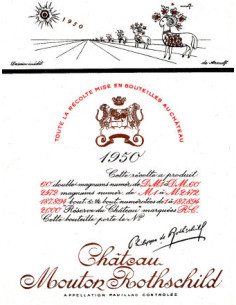 1950
Dessin inédit de Arnulf
TOUTE LA RÉCOLTE MISE EN BOUTEILLES AU CHÂTEAU
1950
Cette récolte a produit
60 double-magnums numér. de D.M.1 à D.M.60
2472 magnums numér. de M.1 à M.2472
187.894 bout. & ½ bout. numérotées de 1 à 187.894
2.000 "Réserve du Château" marquées R.C.
Cette bouteille porte le Nº
Philippe de Rothschild
Château
Mouton Rothschild
APPELLATION PAUILLAC CONTRÔLÉE